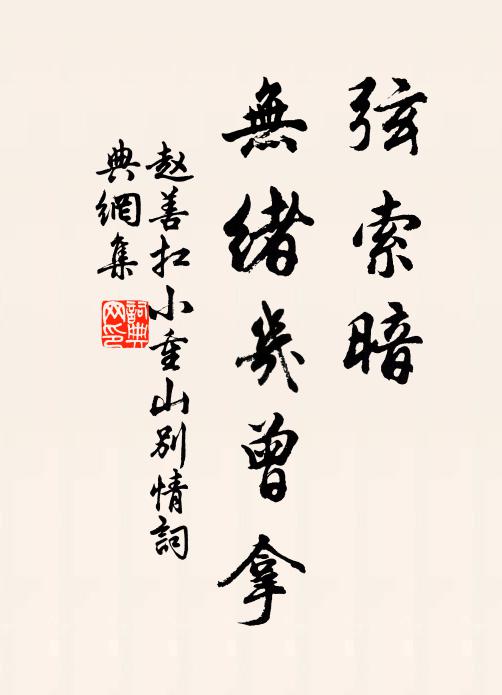 弦索暗
無緒幾曾拿
赵善扛小重山別情詞
典網集
詞典網印